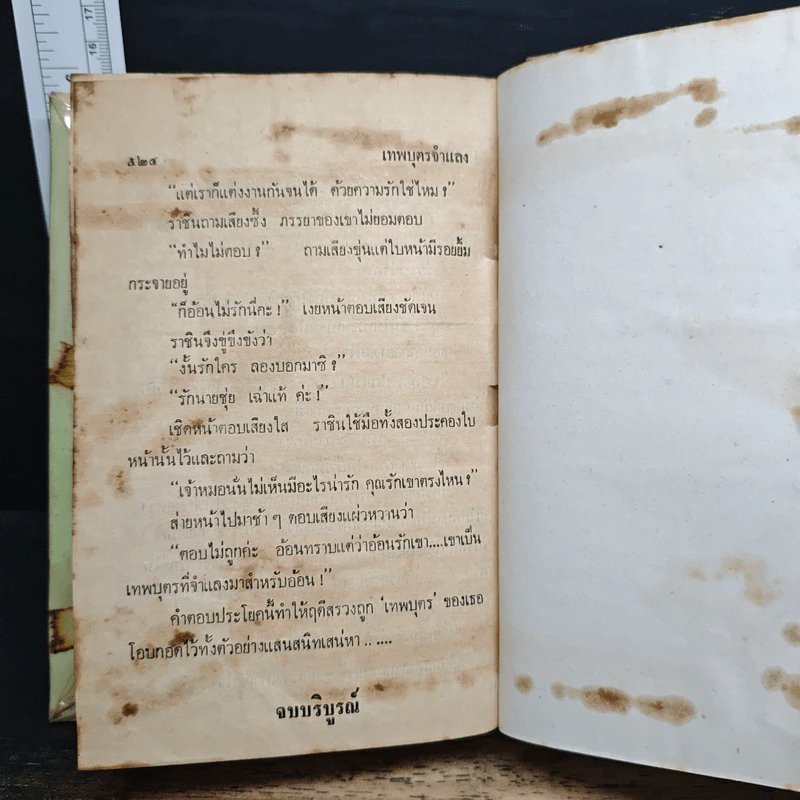 17
16
๕๒๔ เทพบุตรจำแลง
“แต่เราก็แต่งงานกันจนได้ ด้วยความรักใช่ไหม ?”
ราชินถามเสียงซึ้ง ภรรยาของเขาไม่ยอมตอบ
“ทำไมไม่ตอบ ?” ถามเสียงขุ่นแต่ใบหน้ามีรอยยิ้ม
กระจายอยู่
“ก็อ้อนไม่รักนี่คะ !” เงยหน้าตอบเสียงชัดเจน
ราชินจึงขู่ขึงขังว่า
“งั้นรักใคร ลองบอกมาซิ ?”
“รักนายชุ่ย เฉ่าแท้ ค่ะ !”
เชิดหน้าตอบเสียงใส ราชินใช้มือทั้งสองประคองใบ
หน้านั้นไว้และถามว่า
“เจ้าหมอนั่นไม่เห็นมีอะไรน่ารัก คุณรักเขาตรงไหน ?”
ส่ายหน้าไปมาช้า ๆ ตอบเสียงแผ่วหวานว่า
“ตอบไม่ถูกค่ะ อ้อนทราบแต่ว่าอ้อนรักเขา....เขาเป็น
เทพบุตรที่จำแลงมาสำหรับอ้อน !”
คำตอบประโยคนี้ทำให้ฤดีสรวงถูก ‘เทพบุตร’ ของเธอ
โอบกอดไว้ทั้งตัวอย่างแสนสนิทเสน่หา .. ....
จบบริบูรณ์